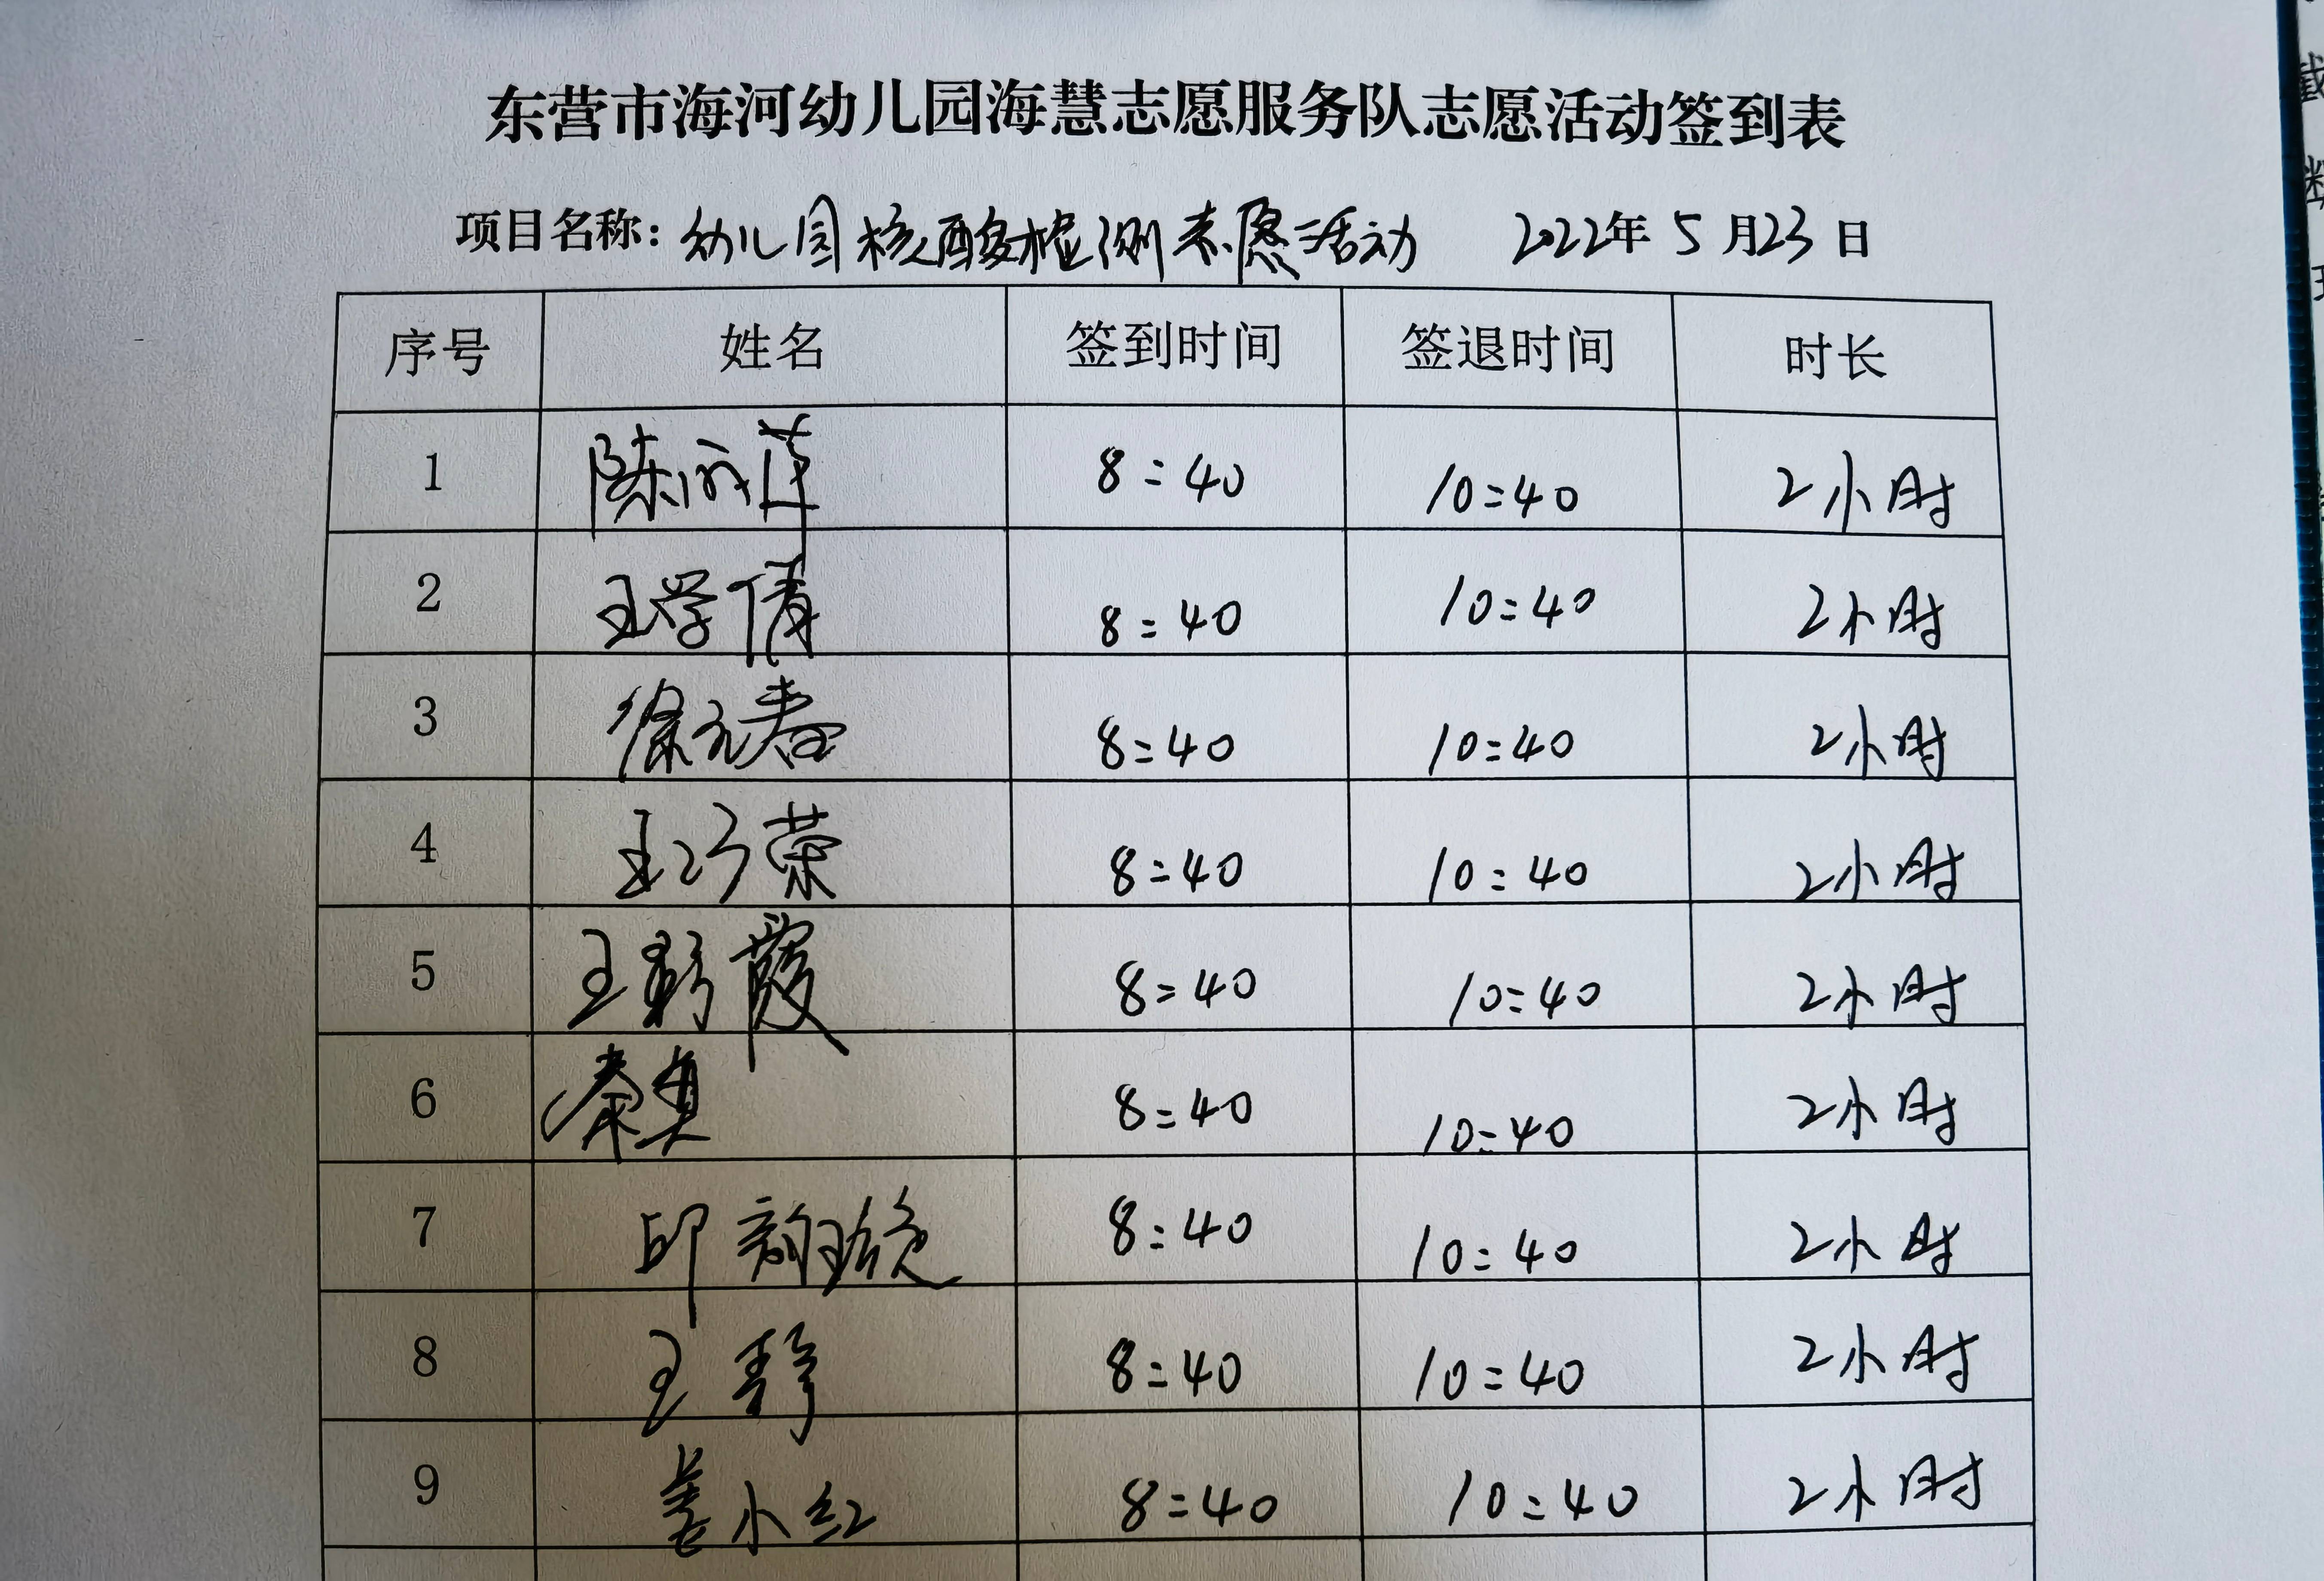 东营市海河幼儿园海慧志愿服务队志愿活动签到表
项目名称：幼儿园核酸检测志愿活动 2022年 5 月23 日
序号 姓名 签到时间 签退时间 时长
1 陈 莲 8:40 10:40 2小时
2 王学倩 8:40 10:40 2小时
3 徐元春 8:40 10:40 2小时
4 王巧荣 8:40 10:40 2小时
5 王彩霞 8:40 10:40 2小时
6 秦 8:40 10:40 2小时
7 印韵 8:40 10:40 2小时
8 王静 8:40 10:40 2小时
9 姜小红 8:40 10:40 2小时